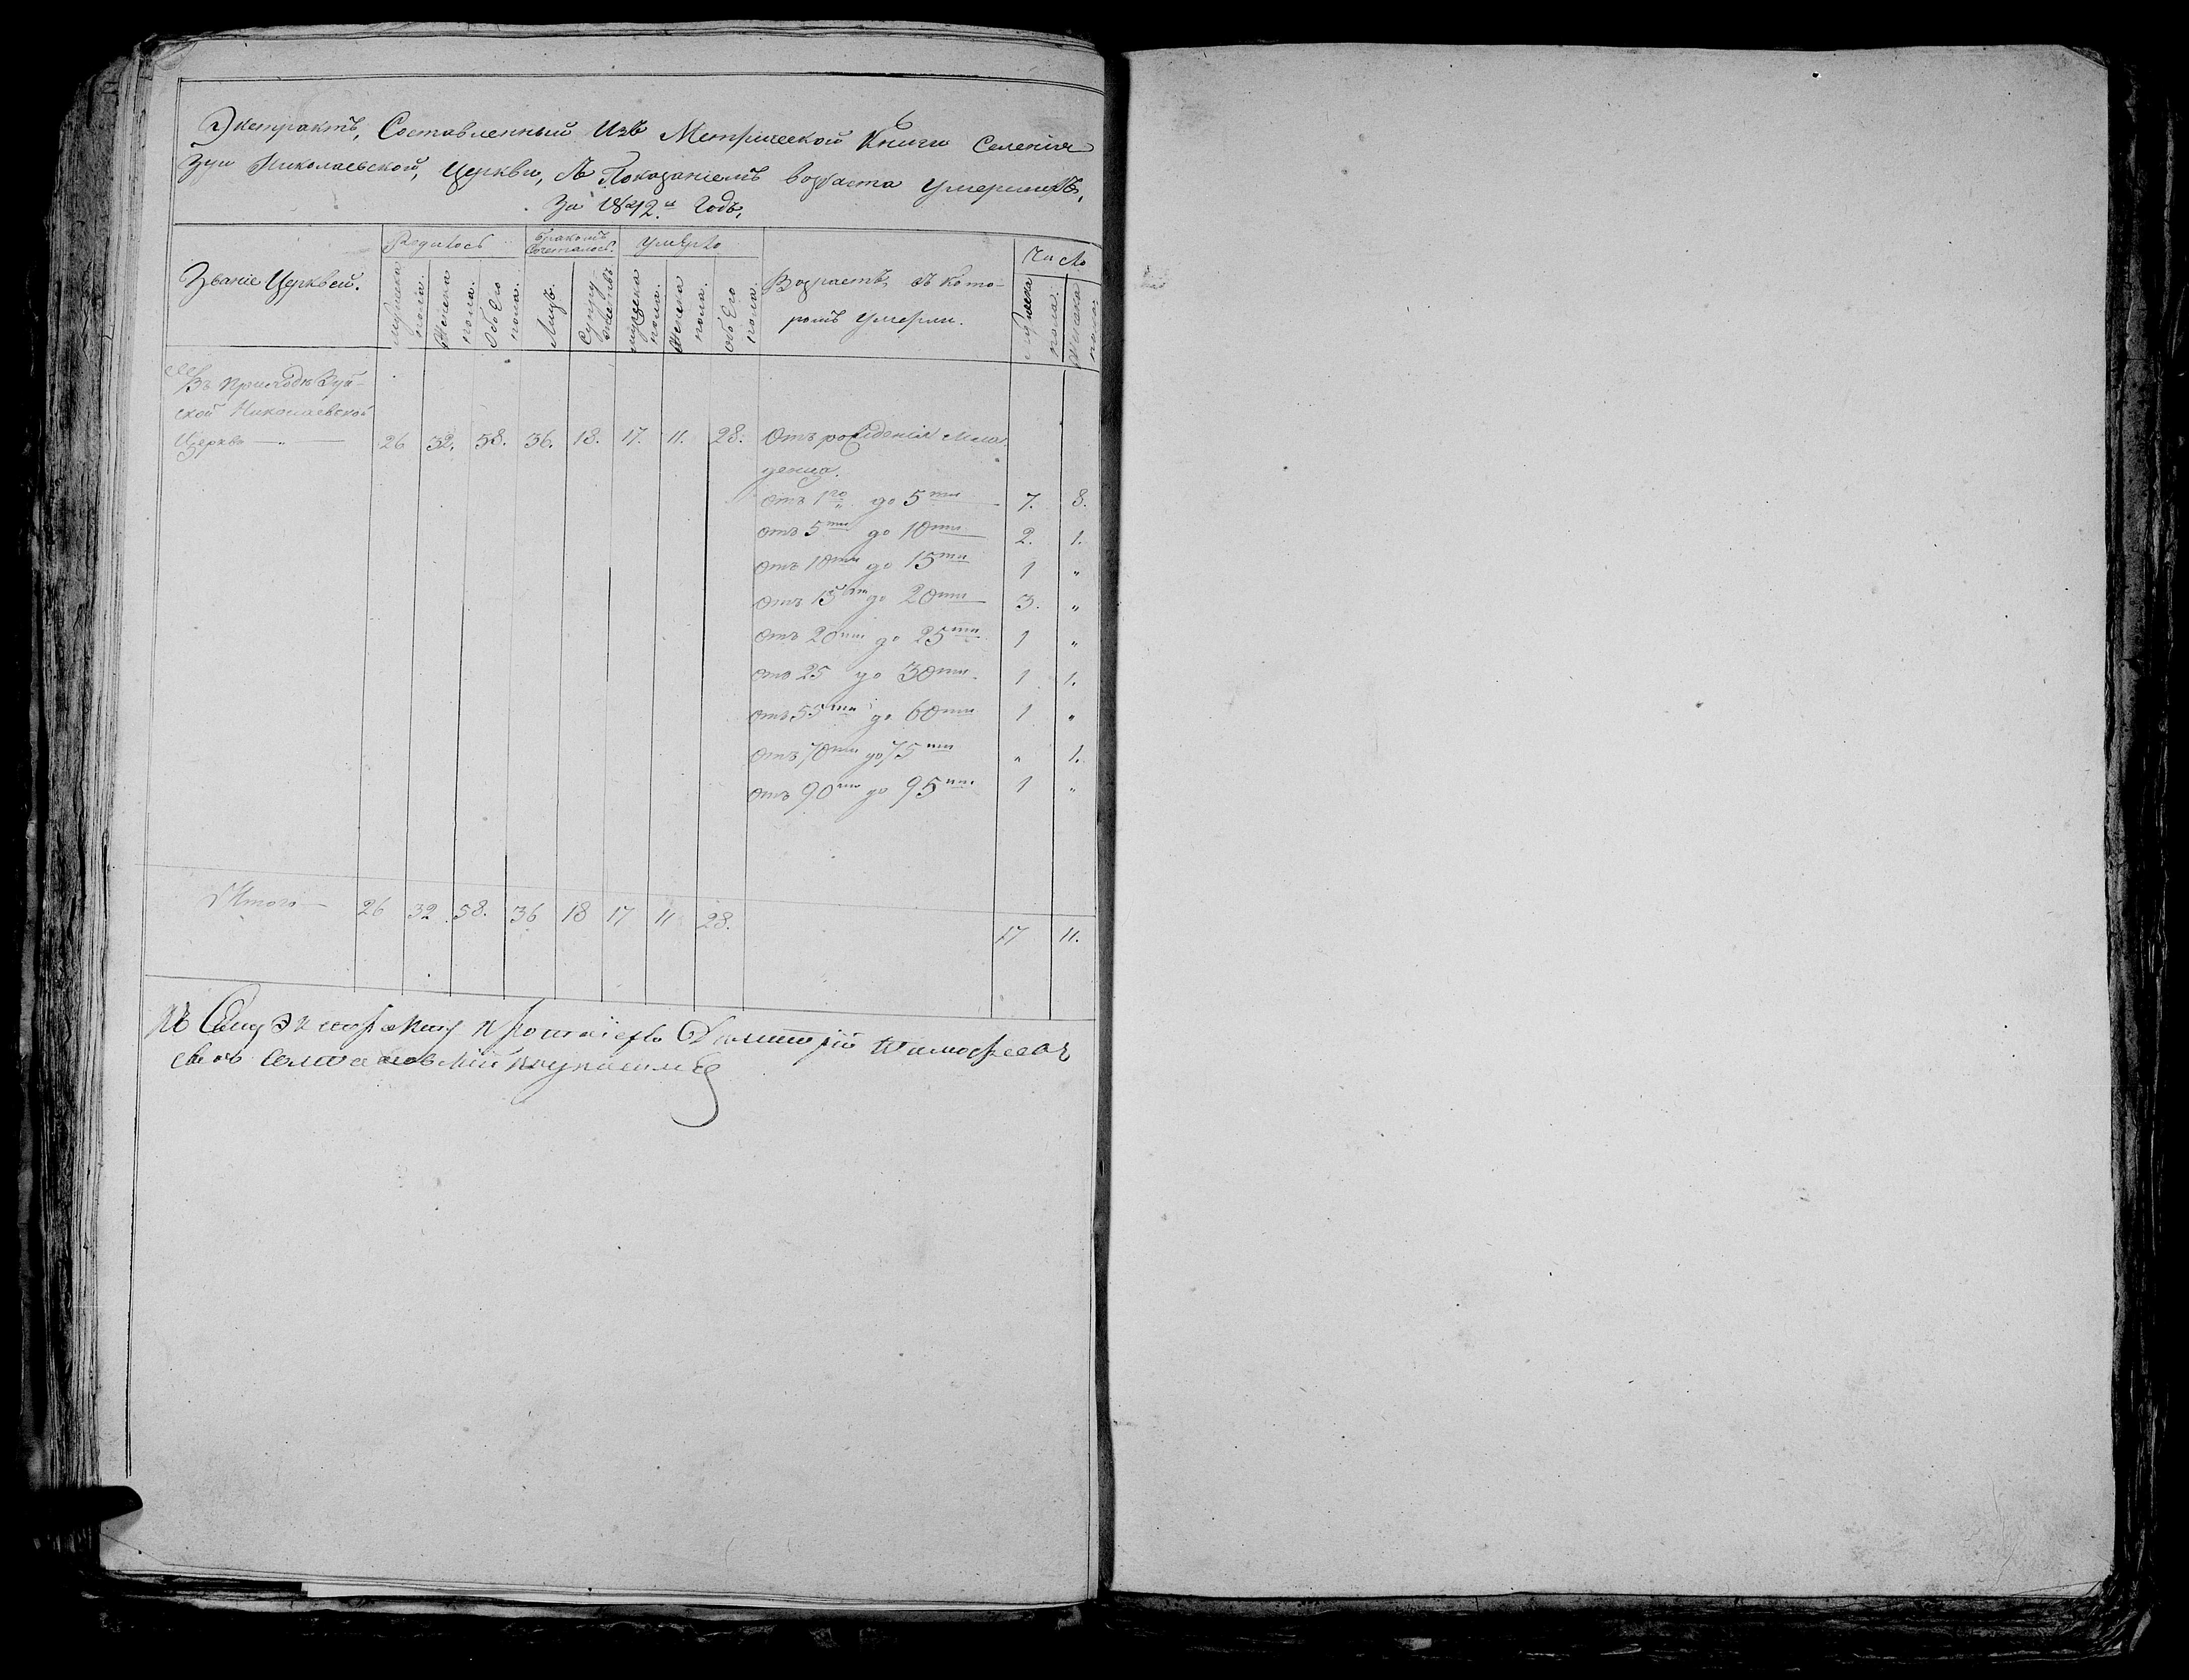 Экстрактъ, Составленный Изъ Метрической Книги Селенія
Зуи Николаевской, Церкви, съ Показаніемъ возраста умершихъ,
За 1842.й Годъ.
Званіе Церквей.
Родилось
Бракомъ Сочеталось.
умерло
Возрастъ, въ кото-
ромъ умерли.
Число
Мужеска пола.
Женска пола.
Обоего пола.
Лицъ.
Супружествъ
мужеска пола.
Женска пола.
обоего пола.
Мужеска пола.
Женска пола.
Въ Приходѣ Зуй-
ской Николаевской
Церкво — " — 26 32. 58. 36. 18. 17. 11. 28. Отъ рожденія Мла
денца.
отъ 1го до 5ти 7. 8.
отъ 5ти до 10ти 2. 1.
отъ 10ти до 15ти 1 "
отъ 15ти до 20ти 3. "
отъ 20ти до 25ти 1 "
отъ 25 до 30ти. 1 1.
отъ 55ти до 60ти 1 "
отъ 70ти до 75ти " 1.
отъ 90ти до 95ти. 1 "
Итого — 26 32 58. 36 18 17 11 28. 17 11.
Къ Сему Экстракту Димитрій